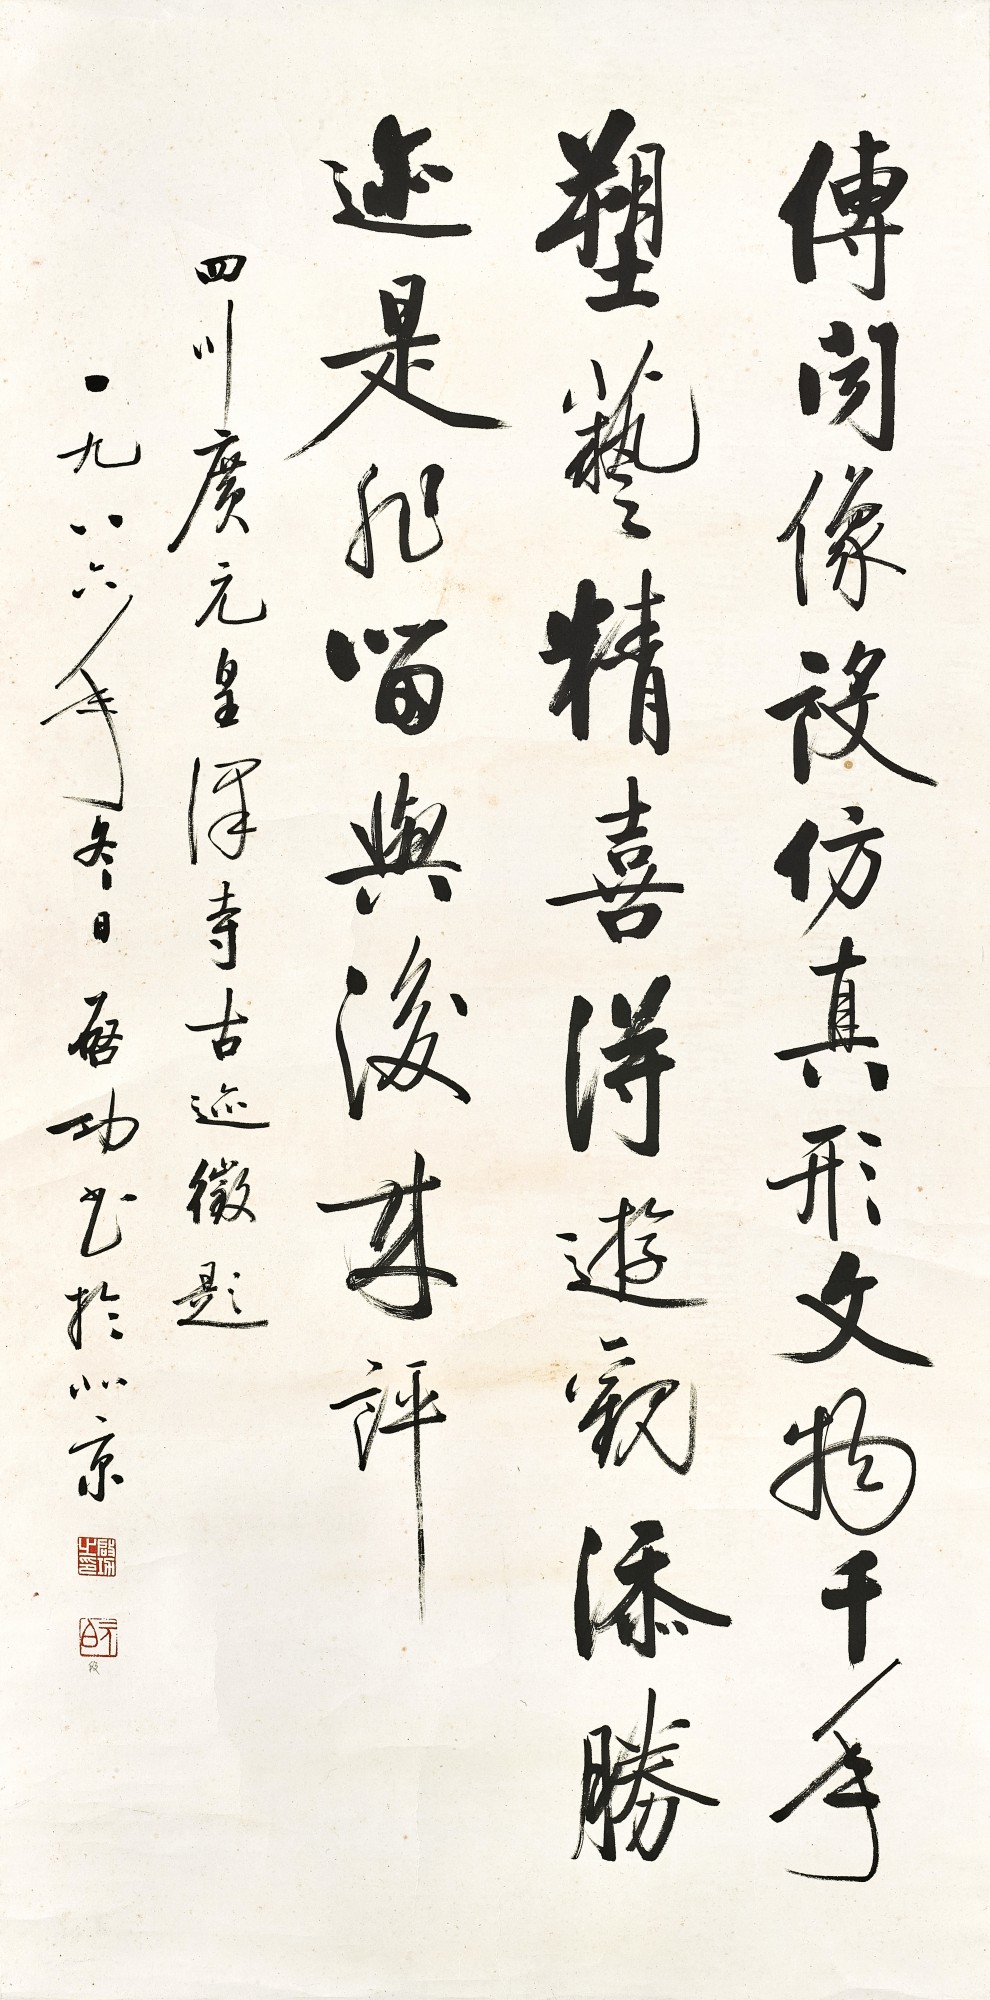 傳聞像設仿真形文物千年
塑藝精喜得遊觀添勝
迹是非留與後來評
四川廣元皇澤寺古迹徵題
一九八六年冬日啟功書於北京
啟功之印
元白